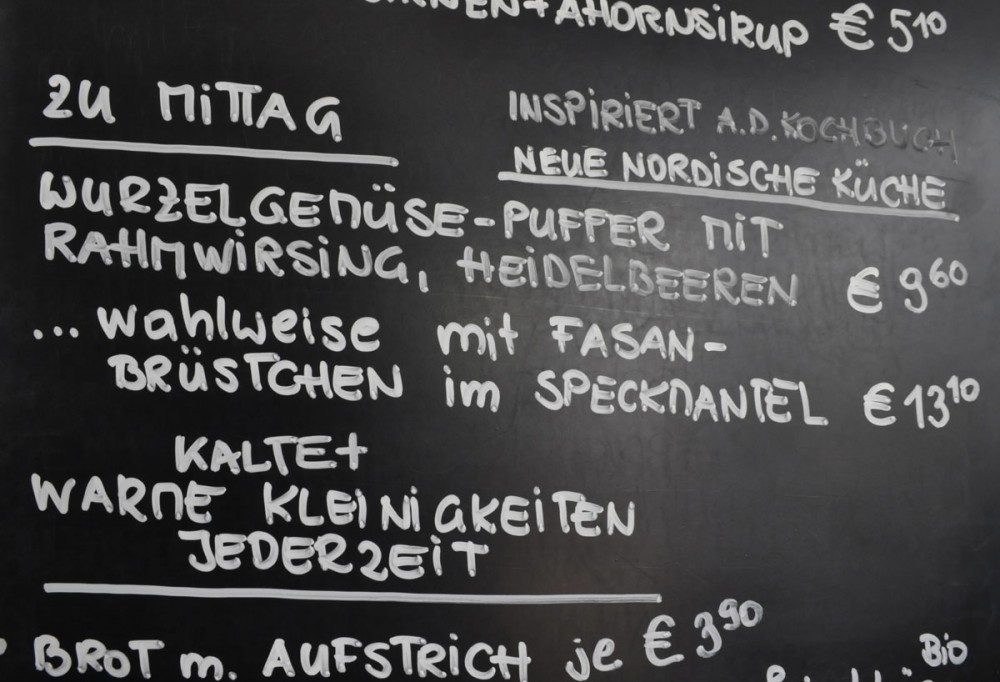 + AHORNSIRUP € 5¹⁰
ZU MITTAG
INSPIRIERT A.D. KOCHBUCH
NEUE NORDISCHE KÜCHE
WURZELGEMÜSE-PUFFER MIT
RAHMWIRSING, HEIDELBEEREN € 9⁶⁰
... wahlweise mit FASAN-
BRÜSTCHEN im SPECKMANTEL € 13¹⁰
KALTE+
WARME KLEINIGKEITEN
JEDERZEIT
BROT m. AUFSTRICH je € 3⁹⁰
BiO